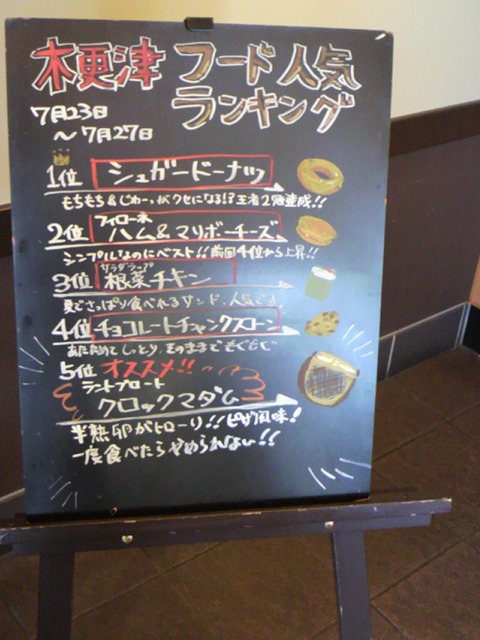 木更津 フード人気
ランキング
7月23日
～7月27日
1位 シュガードーナツ
もちもち&じゅわ~っがクセになる!?王者2連達成!!
2位 フィローネ
ハム&マリボーチーズ
シンプルなのにベスト!!前回4位から上昇!!
サラダラップ
3位 根菜チキン
夏でさっぱり食べれるサンド、人気です
4位 チョコレートチャンクスコーン
あたためてしっとり、そのままでもぐもぐ
5位 オススメ!!
ラントブロート
クロックマダム
半熟卵がトローリ!!ピザ風味!
一度食べたらやめられない!!